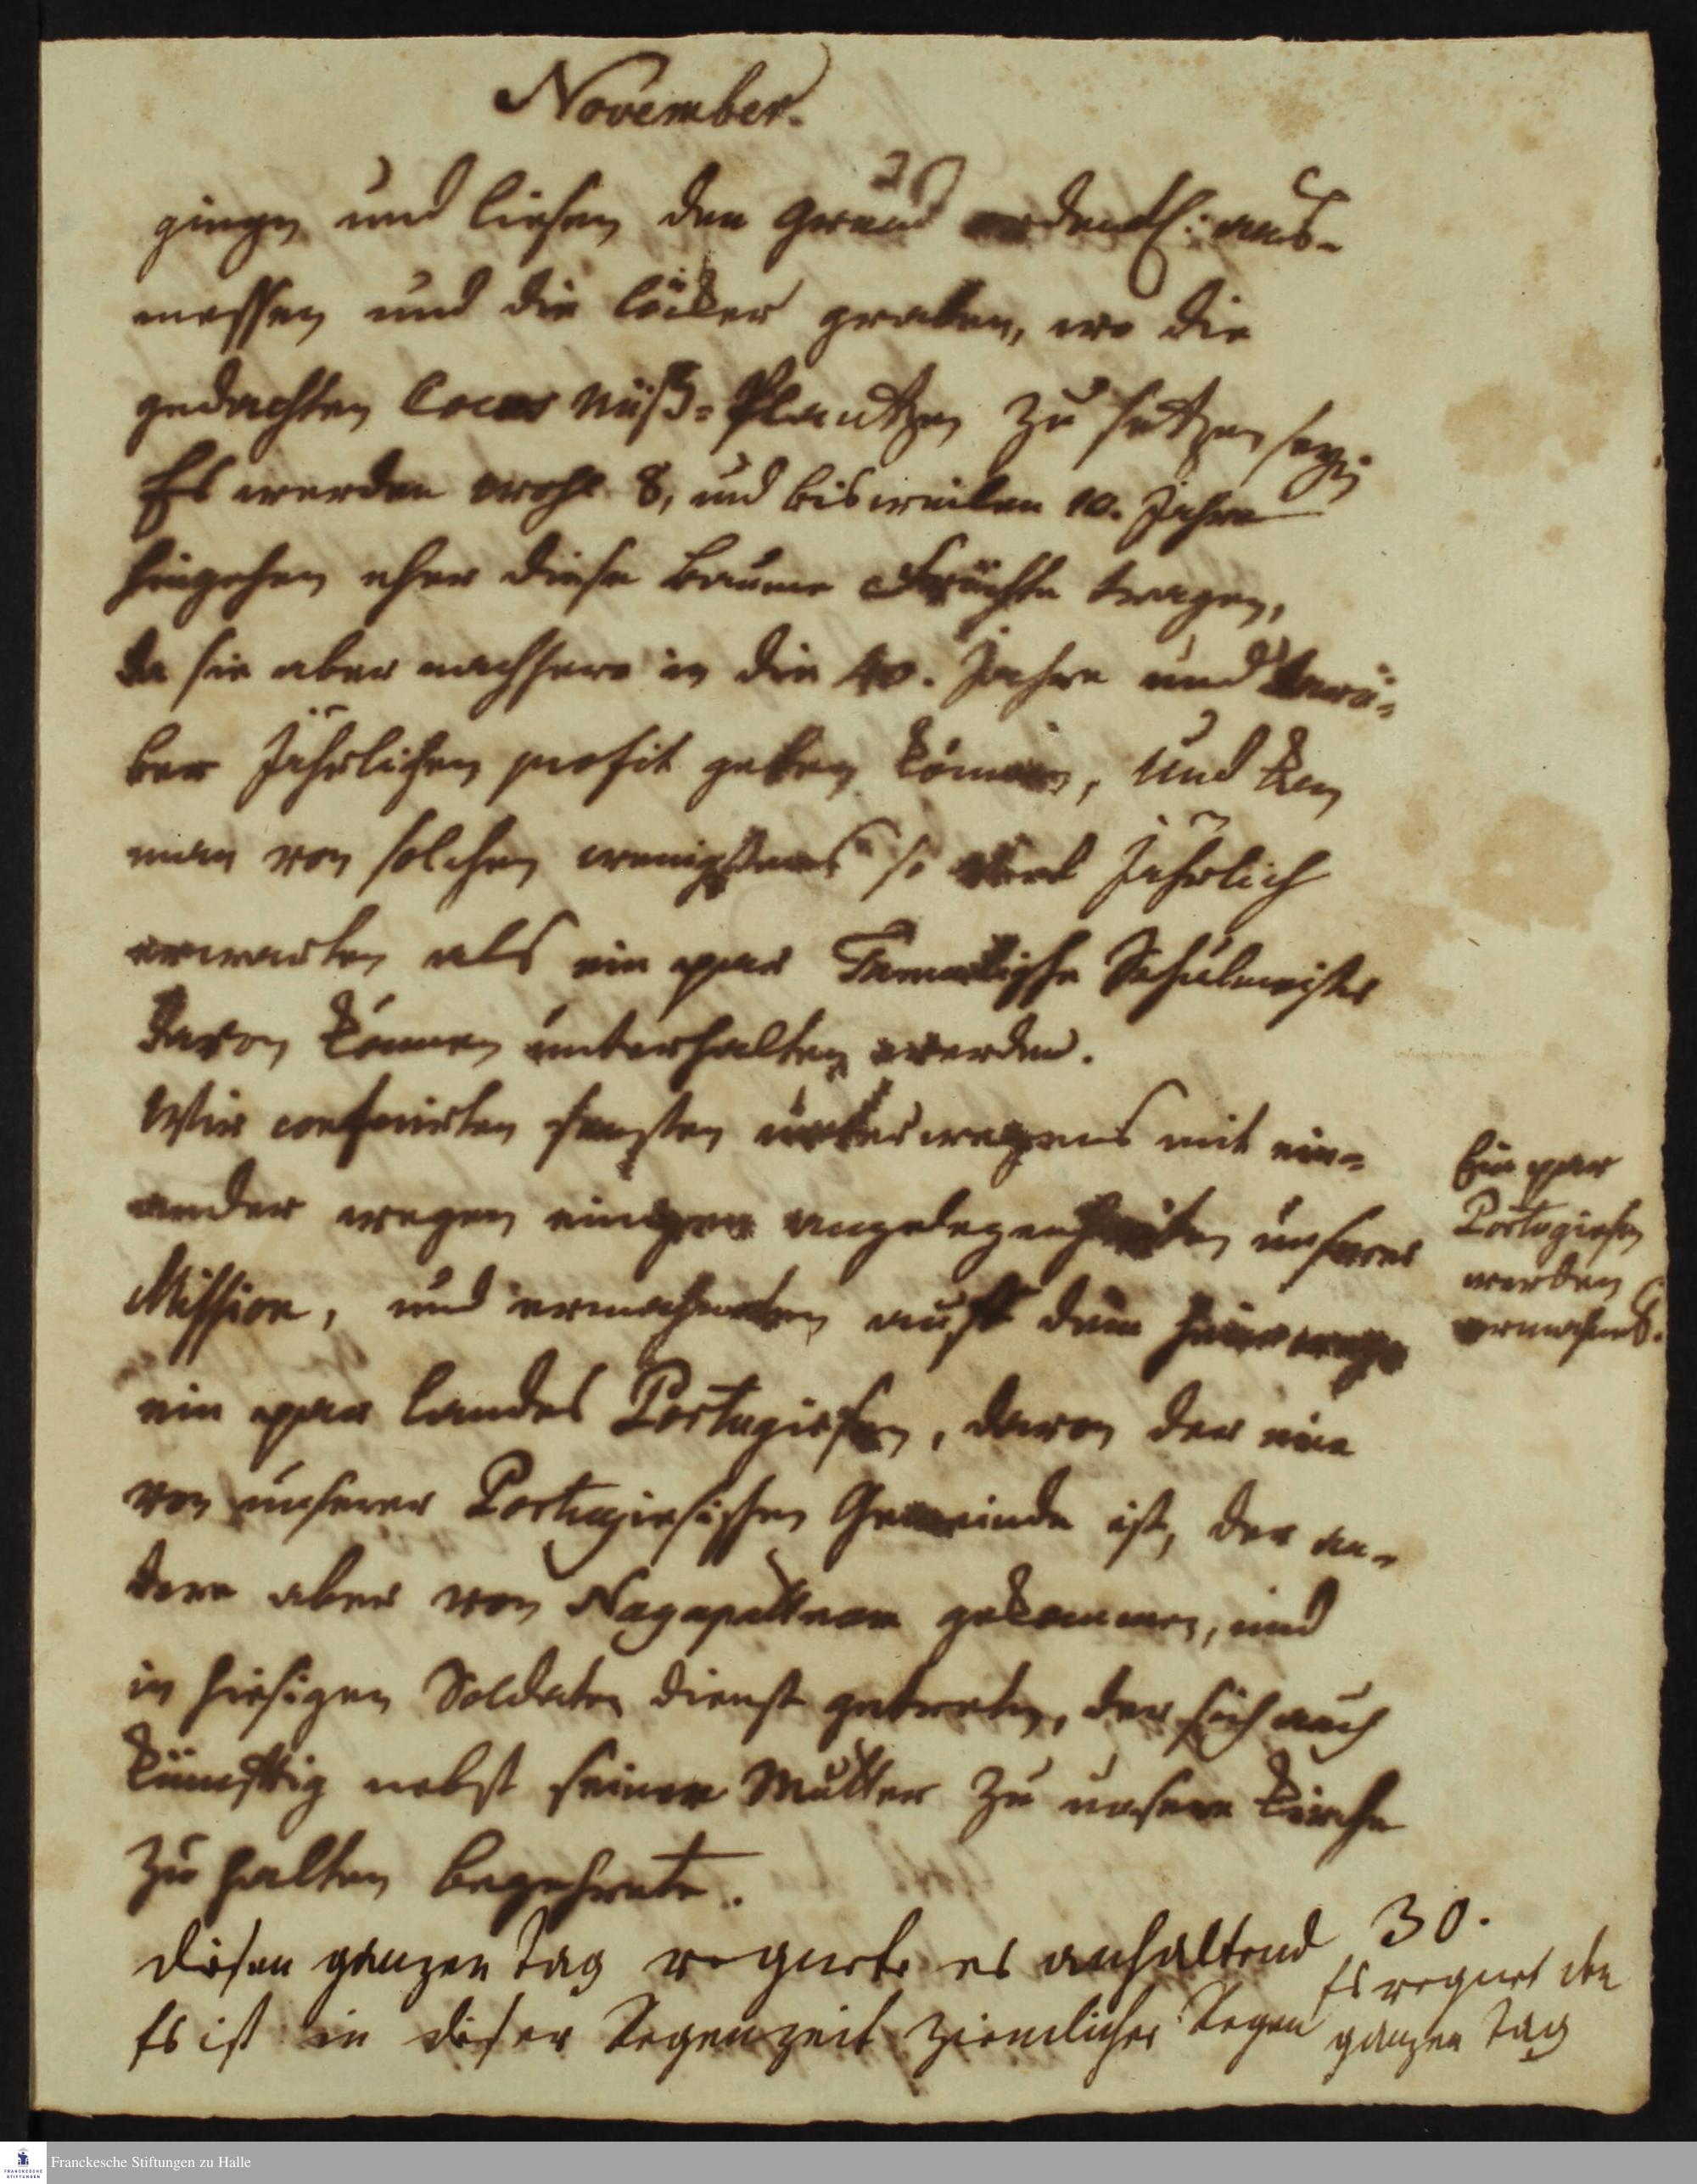 November.
gingen und ließen den Grund ordentl: aus-
messen und die löcher graben, wo die
gedachten Cocos Nüß-Plantzen zu setzen seyn
Es werden wohl 8, und bisweilen 10. Jahre
hingehen eher diese baume Früchte tragen,
da sie aber nachhero in die 40. Jahre und darü-
ber Jährlichen profit geben können, und kan
man von solchen wenigstens so viel Jährlich
erwarten als ein paar Tamulische Schulmeister
davon können unterhalten werden.
Wir conferirten sonsten unterwegens mit ein-
ander wegen einigen angelegenheiten unserer
Mission, und ermahneten auff dem heimwege
ein paar landes Portugiesen, davon der eine
von unserer Portugiesischen Gemeinde ist, der an-
dere aber von Nagapattnam gekommen, und
in hiesigen Soldaten dienst getreten, der sich auch
künfftig nebst seiner Mutter zu unsere Kirche
zu halten begehrete.
Ein paar
Portugiesen
werden
ermahnet.
diesen ganzen tag regnete es anhaltend
Es ist in dieser Regenzeit ziemlicher Regen
30.
Es regnet den
ganzen tag
Franckesche Stiftungen zu Halle
FRANCKESCHE
STIFTUNGEN